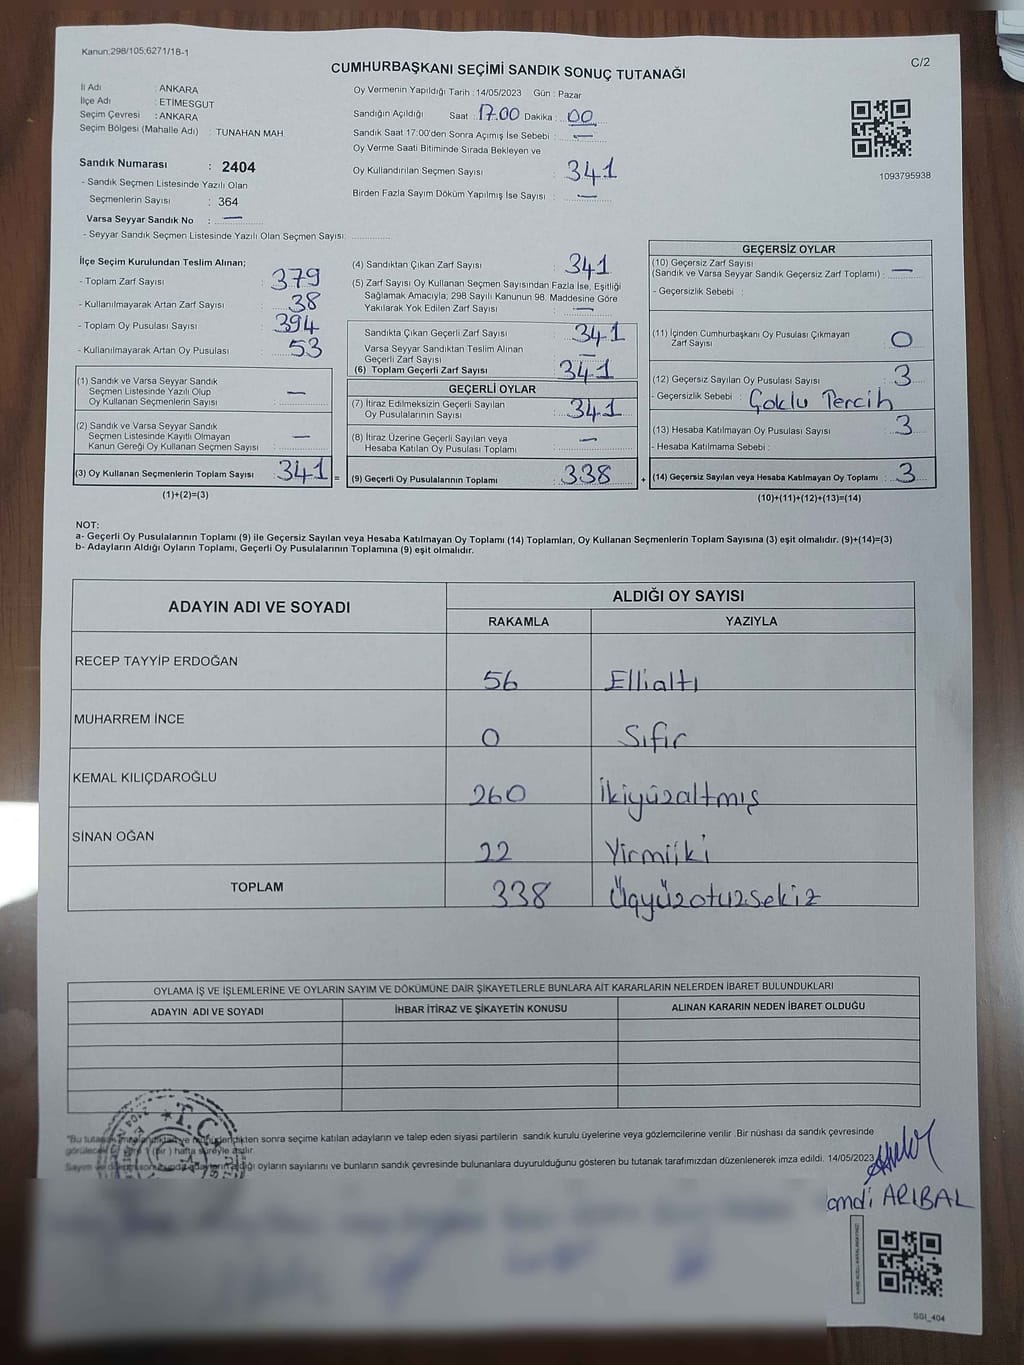 Kanun;298/105;6271/18-1
C/2
CUMHURBAŞKANI SEÇİMİ SANDIK SONUÇ TUTANAĞI
İl Adı : ANKARA
İlçe Adı : ETİMESGUT
Seçim Çevresi : ANKARA
Seçim Bölgesi (Mahalle Adı) : TUNAHAN MAH.
Sandık Numarası : 2404
- Sandık Seçmen Listesinde Yazılı Olan
Seçmenlerin Sayısı : 364
Varsa Seyyar Sandık No : —
- Seyyar Sandık Seçmen Listesinde Yazılı Olan Seçmen Sayısı:
Oy Vermenin Yapıldığı Tarih : 14/05/2023 Gün : Pazar
Sandığın Açıldığı Saat : 17.00 Dakika : 00
Sandık Saat 17:00'den Sonra Açımış İse Sebebi : —
Oy Verme Saati Bitiminde Sırada Bekleyen ve
Oy Kullandırılan Seçmen Sayısı : 341
Birden Fazla Sayım Döküm Yapılmış İse Sayısı : —
1093795938
İlçe Seçim Kurulundan Teslim Alınan;
- Toplam Zarf Sayısı : 379
- Kullanılmayarak Artan Zarf Sayısı : 38
- Toplam Oy Pusulası Sayısı : 394
- Kullanılmayarak Artan Oy Pusulası : 53
(1) Sandık ve Varsa Seyyar Sandık
Seçmen Listesinde Yazılı Olup
Oy Kullanan Seçmenlerin Sayısı : —
(2) Sandık ve Varsa Seyyar Sandık
Seçmen Listesinde Kayıtlı Olmayan
Kanun Gereği Oy Kullanan Seçmen Sayısı : —
(3) Oy Kullanan Seçmenlerin Toplam Sayısı : 341 =
(1)+(2)=(3)
(4) Sandıktan Çıkan Zarf Sayısı : 341
(5) Zarf Sayısı Oy Kullanan Seçmen Sayısından Fazla İse, Eşitliği
Sağlamak Amacıyla; 298 Sayılı Kanunun 98. Maddesine Göre
Yakılarak Yok Edilen Zarf Sayısı : —
Sandıkta Çıkan Geçerli Zarf Sayısı : 341
Varsa Seyyar Sandıktan Teslim Alınan
Geçerli Zarf Sayısı : —
(6) Toplam Geçerli Zarf Sayısı : 341
GEÇERLİ OYLAR
(7) İtiraz Edilmeksizin Geçerli Sayılan
Oy Pusulalarının Sayısı : 341
(8) İtiraz Üzerine Geçerli Sayılan veya
Hesaba Katılan Oy Pusulası Toplamı : —
(9) Geçerli Oy Pusulalarının Toplamı : 338 +
GEÇERSİZ OYLAR
(10) Geçersiz Zarf Sayısı
(Sandık ve Varsa Seyyar Sandık Geçersiz Zarf Toplamı) : —
- Geçersizlik Sebebi :
(11) İçinden Cumhurbaşkanı Oy Pusulası Çıkmayan
Zarf Sayısı : 0
(12) Geçersiz Sayılan Oy Pusulası Sayısı : 3
- Geçersizlik Sebebi : Çoklu Tercih
(13) Hesaba Katılmayan Oy Pusulası Sayısı : 3
- Hesaba Katılmama Sebebi :
(14) Geçersiz Sayılan veya Hesaba Katılmayan Oy Toplamı : 3
(10)+(11)+(12)+(13)=(14)
NOT:
a- Geçerli Oy Pusulalarının Toplamı (9) ile Geçersiz Sayılan veya Hesaba Katılmayan Oy Toplamı (14) Toplamları, Oy Kullanan Seçmenlerin Toplam Sayısına (3) eşit olmalıdır. (9)+(14)=(3)
b- Adayların Aldığı Oyların Toplamı, Geçerli Oy Pusulalarının Toplamına (9) eşit olmalıdır.
ADAYIN ADI VE SOYADI ALDIĞI OY SAYISI
RAKAMLA YAZIYLA
RECEP TAYYİP ERDOĞAN 56 Ellialtı
MUHARREM İNCE 0 Sıfır
KEMAL KILIÇDAROĞLU 260 İkiyüzaltmış
SİNAN OĞAN 22 Yirmiiki
TOPLAM 338 Üçyüzotuzsekiz
OYLAMA İŞ VE İŞLEMLERİNE VE OYLARIN SAYIM VE DÖKÜMÜNE DAİR ŞİKAYETLERLE BUNLARA AİT KARARLARIN NELERDEN İBARET BULUNDUKLARI
ADAYIN ADI VE SOYADI İHBAR İTİRAZ VE ŞİKAYETİN KONUSU ALINAN KARARIN NEDEN İBARET OLDUĞU
"Bu sonra seçime katılan adayların ve talep eden siyasi partilerin sandık kurulu üyelerine veya gözlemcilerine verilir .Bir nüshası da sandık çevresinde
hafta süreyle asılır.
oyların sayılarını ve bunların sandık çevresinde bulunanlara duyurulduğunu gösteren bu tutanak tarafımızdan düzenlenerek imza edildi. 14/05/2023
T.C.
2404
ARIBAL
SSI_404